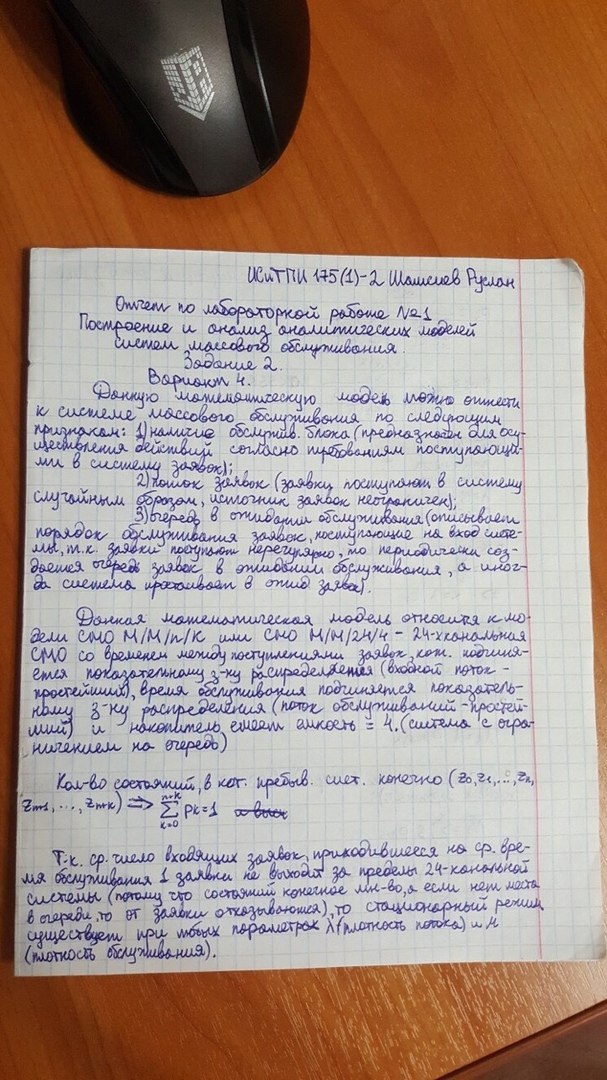 ИСиТПИ 175(1)-2 Шамсиев Руслан
Отчет по лабораторной работе №1
Построение и анализ аналитических моделей
систем массового обслуживания.
Задание 2.
Вариант 4.
Данную математическую модель можно отнести
к системе массового обслуживания по следующим
признакам: 1) наличие обслужив. блока (предназначен для осу-
ществления действий согласно требованиям поступающи-
ми в систему заявок);
2) поток заявок (заявки поступают в систему
случайным образом, источник заявок неограничен);
3) очередь в ожидании обслуживания (описывает
порядок обслуживания заявок, поступающие на вход систе-
мы, т.к. заявки поступают нерегулярно, то периодически соз-
дается очередь заявок в ожидании обслуживания, а иног-
да система простаивает в ожид заявок).
Данная математическая модель относится к мо-
дели СМО M/M/n/K или СМО M/M/24/4 - 24-хканальная
СМО со временем между поступлениями заявок, кот. подчиня-
ется показательному з-ну распределения (входной поток -
простейший), время обслуживания подчиняется показатель-
ному з-ну распределения (поток обслуживаний - простей-
ший) и накопитель имеет емкость = 4. (система с огра-
ничением на очередь)
Кол-во состояний, в кот. пребыв. сист. конечно (z₀, z₁, ..., zₙ,
zₙ₊₁, ..., zₙ₊ₖ) ⇒ n+k ∑ k=0 pk = 1
Т.к. ср. число входящих заявок, приходившееся на ср. вре-
мя обслуживания 1 заявки не выходит за пределы 24-канальной
системы (потому что состояний конечное мн-во, а если нет места
в очереди, то от заявки отказываются), то стационарный режим
существует при любых параметрах λ (плотность потока) и μ
(плотность обслуживания).